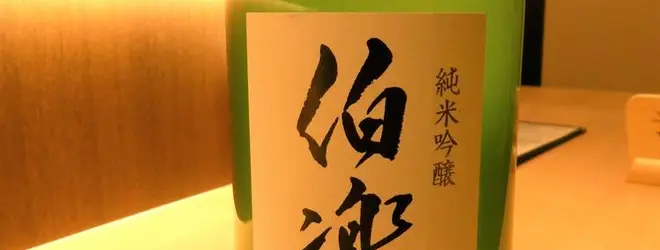 純米吟醸
伯楽